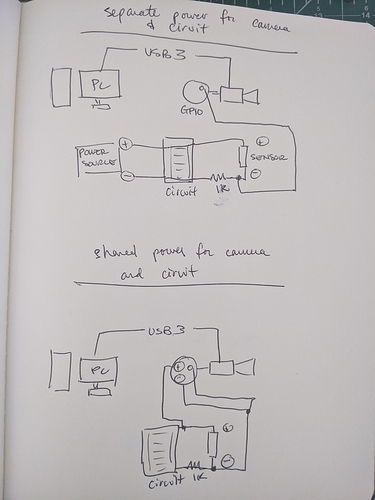 separate power for camera
& circuit
USB3
PC
GPIO
POWER
SOURCE
+
-
+
SENSOR
-
circuit
1K
shared power for camera
and circuit
USB3
PC
+
-
+
-
circuit
1K